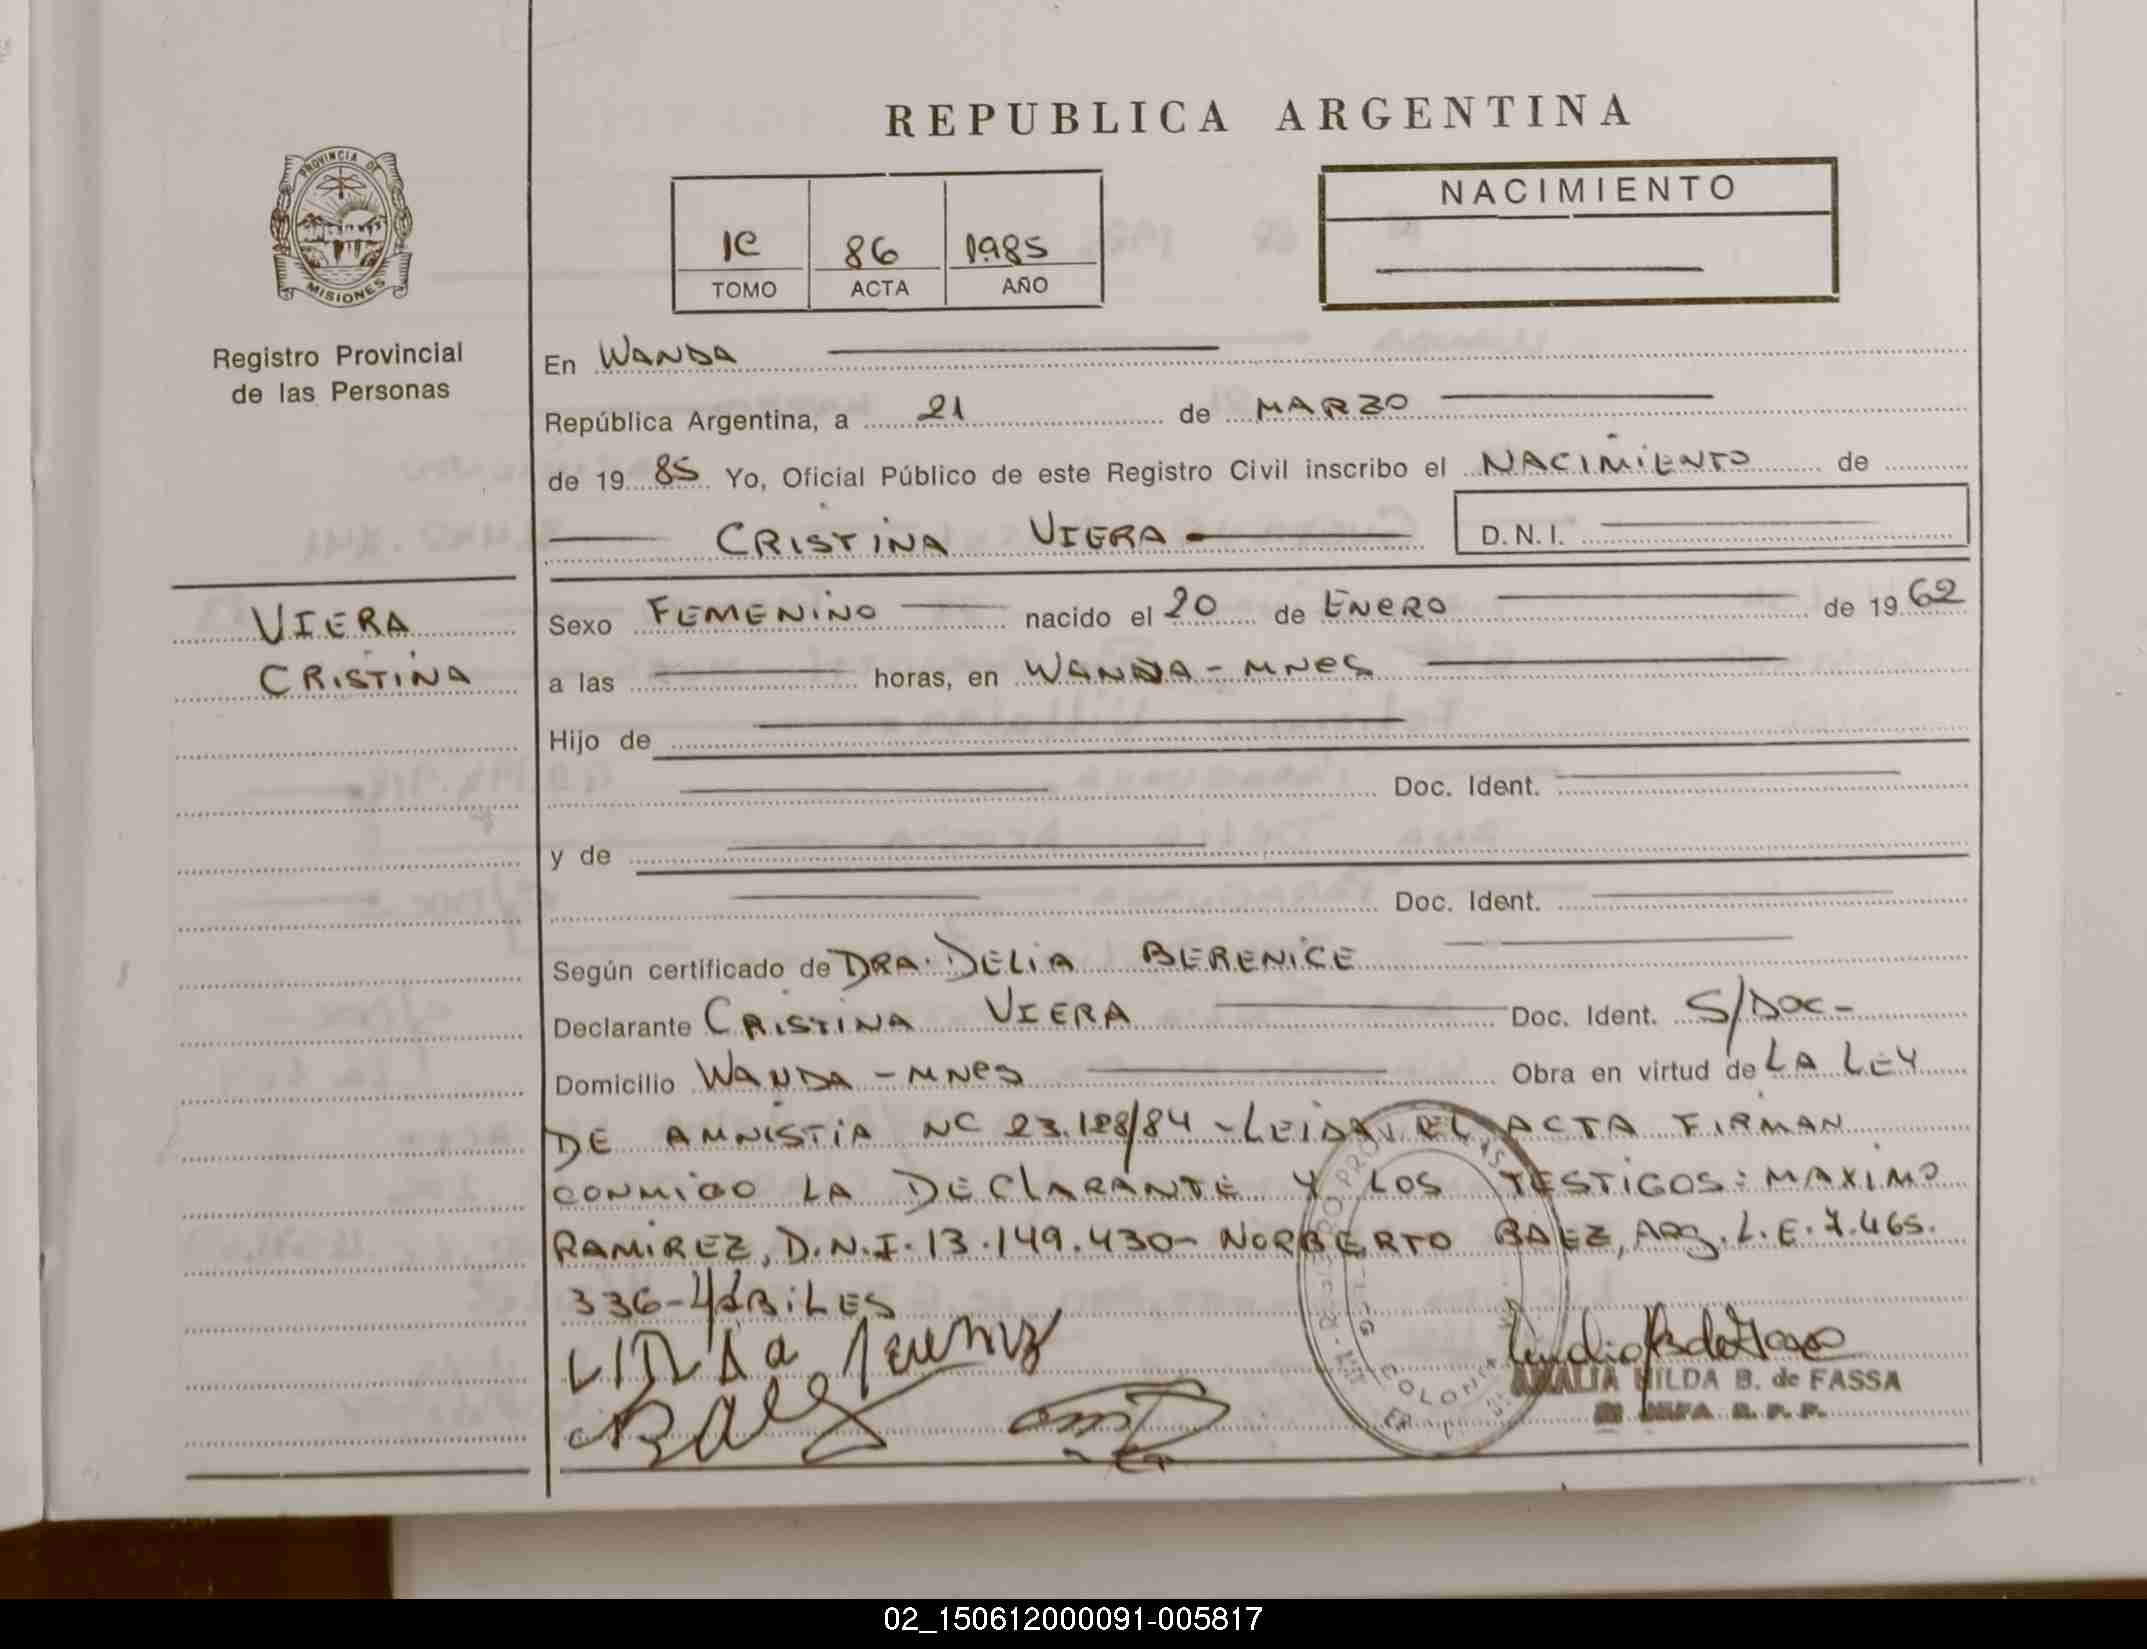 REPUBLICA ARGENTINA
PROVINCIA DE
MISIONES
Registro Provincial
de las Personas
1C 86 1985
TOMO ACTA AÑO
NACIMIENTO
En WANDA
República Argentina, a 21 de MARZO
de 1985 Yo, Oficial Público de este Registro Civil inscribo el NACIMIENTO de
CRISTINA VIERA D.N.I.
VIERA
CRISTINA
Sexo FEMENINO nacido el 20 de ENERO de 1962
a las horas, en WANDA - MNES
Hijo de
Doc. Ident.
y de
Doc. Ident.
Según certificado de DRA. DELIA BERENICE
Declarante CRISTINA VIERA Doc. Ident. S/DOC-
Domicilio WANDA - MNES Obra en virtud de LA LEY
DE AMNISTIA NC 23.128/84 - LEIDA EL ACTA FIRMAN
CONMIGO LA DECLARANTE Y LOS TESTIGOS: MAXIMO
RAMIREZ, D.N.I. 13.149.430- NORBERTO BAEZ, ARG. L.E. 7.465.
336- HABILES
AMALIA HILDA B. de FASSA
JEFA R. P. P.
02_150612000091-005817